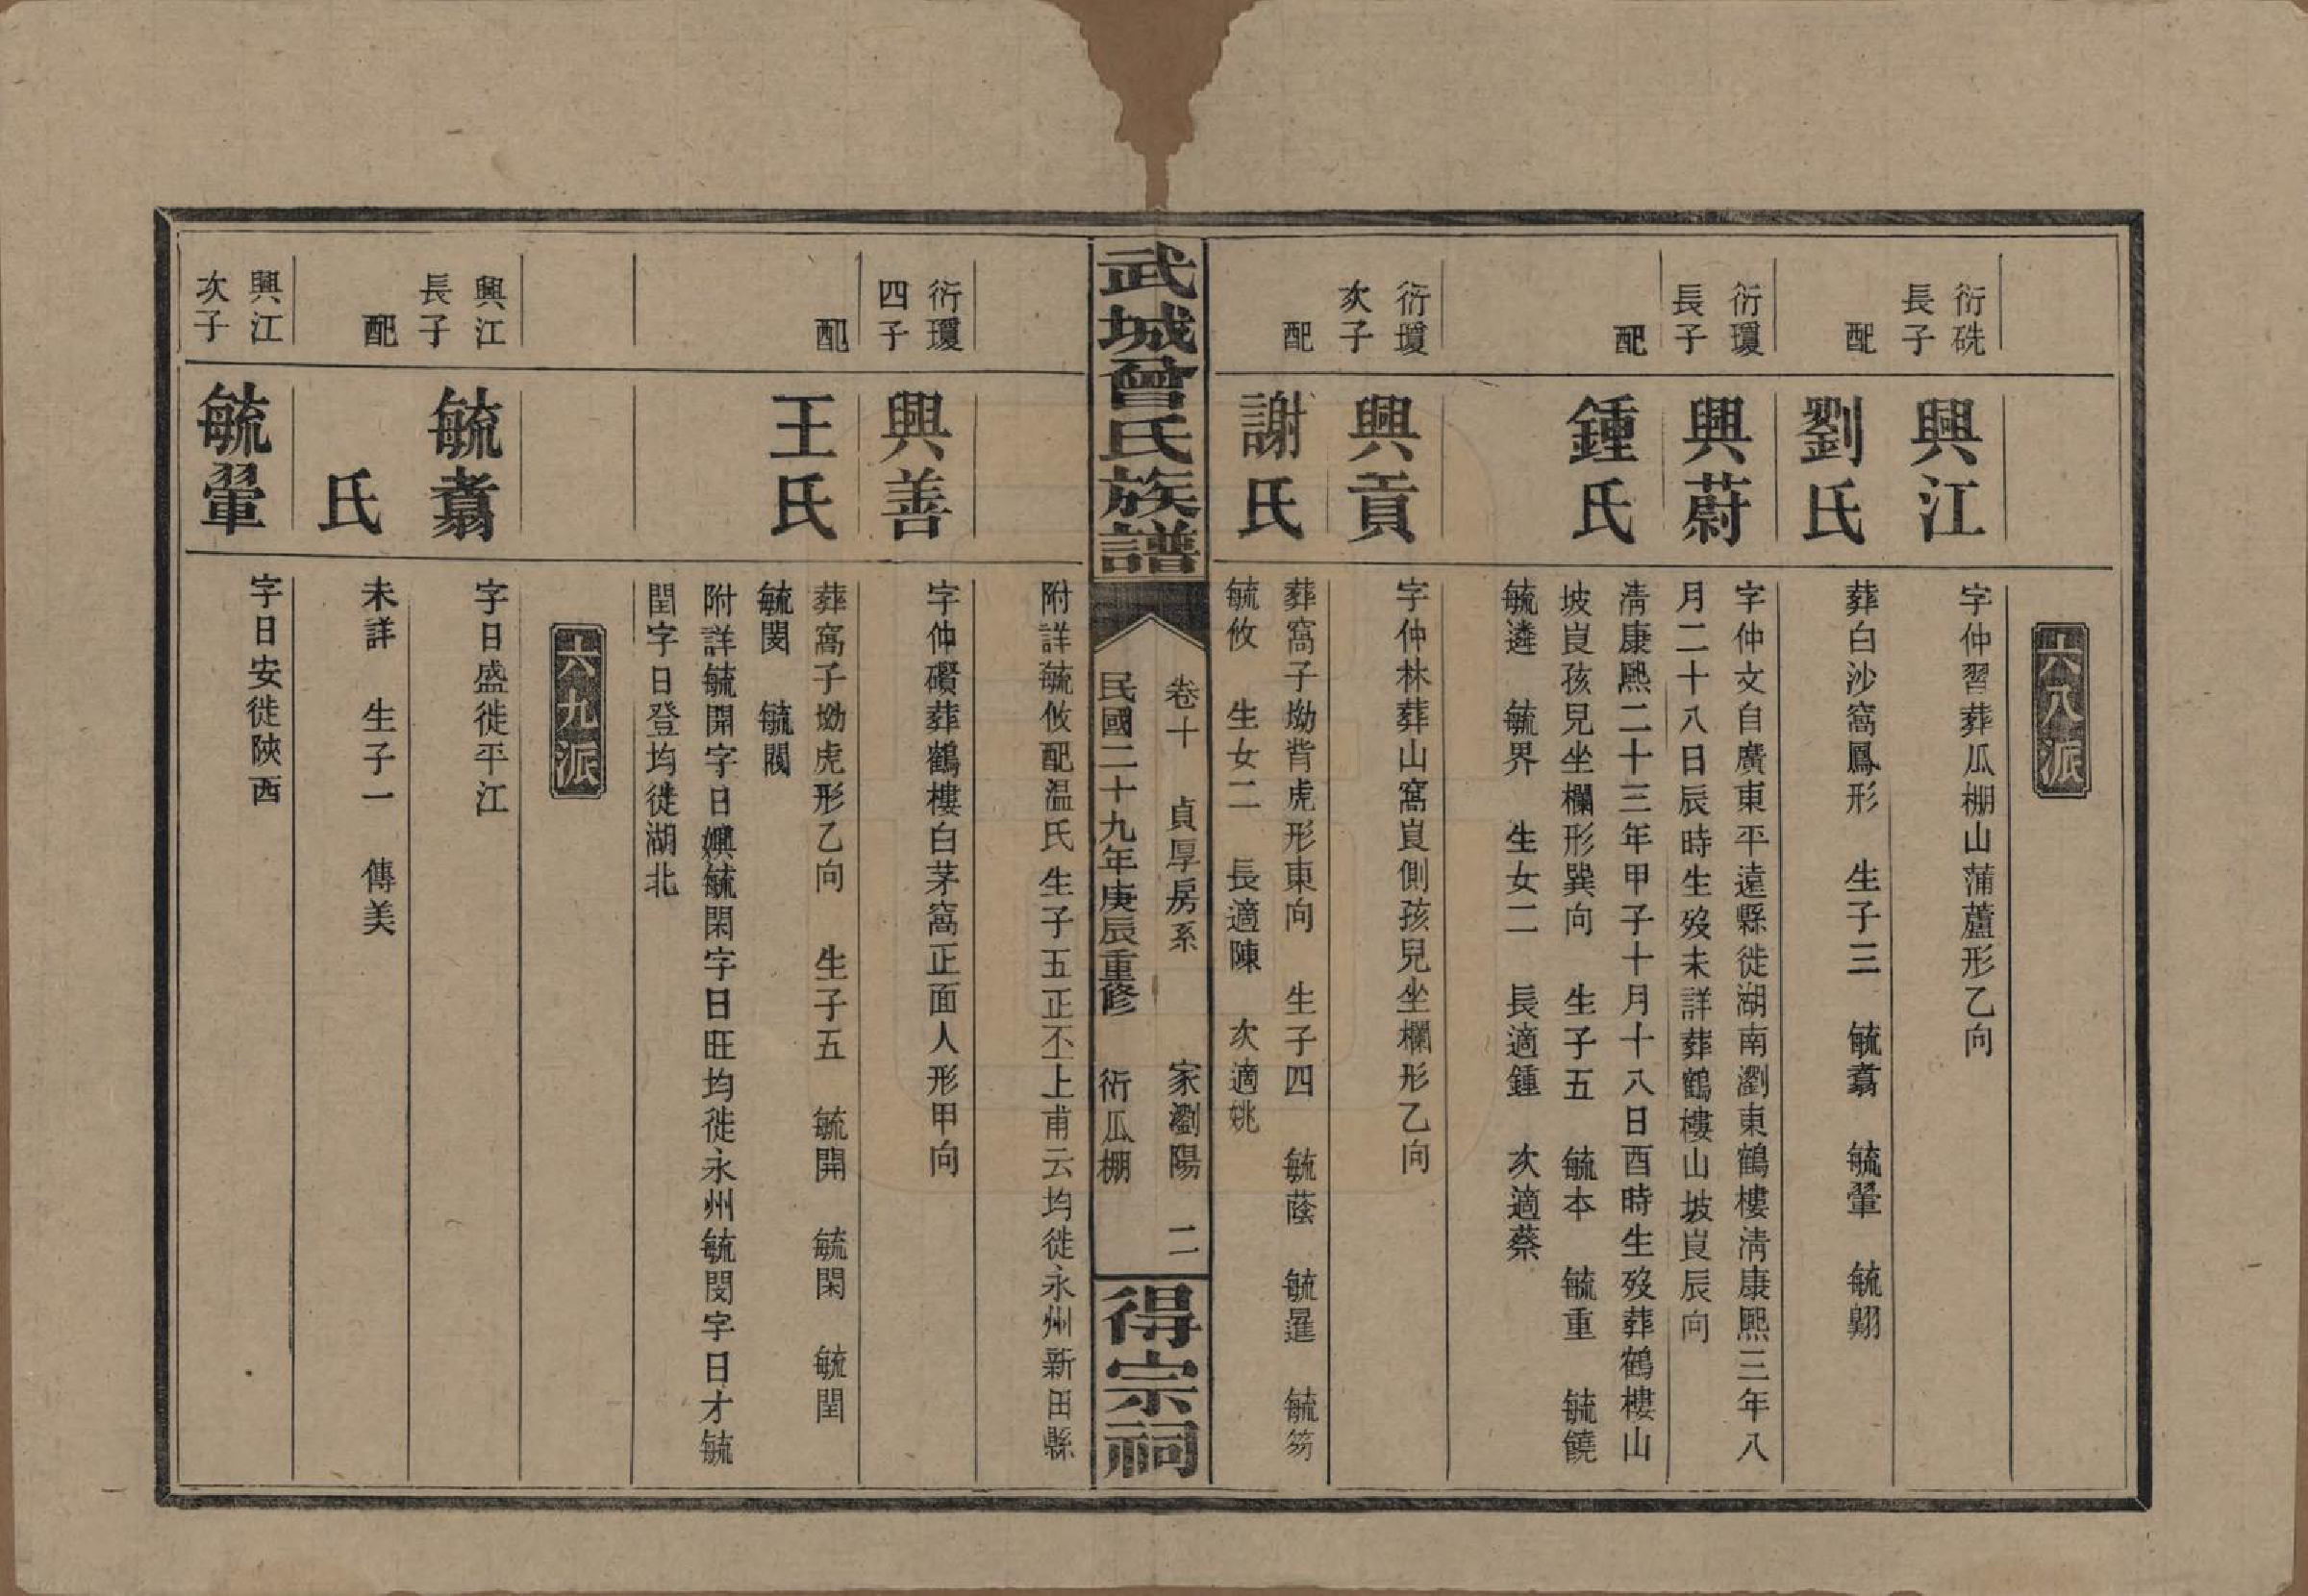 六八派
衍硄長子
興江
字仲習葬瓜棚山蒲蘆形乙向
配
劉氏
葬白沙窩鳳形 生子三 毓翥 毓翬 毓翱
衍瓊長子
興蔚
字仲文自廣東平遠縣徙湖南瀏東鶴樓淸康熙三年八
月二十八日辰時生歿未詳葬鶴樓山坡崀辰向
配
鍾氏
淸康熙二十三年甲子十月十八日酉時生歿葬鶴樓山
坡崀孩兒坐欄形巽向 生子五 毓本 毓重 毓饒
毓遴 毓界 生女二 長適鍾 次適蔡
衍瓊次子
興貢
字仲林葬山窩崀側孩兒坐欄形乙向
配
謝氏
葬窩子坳背虎形東向 生子四 毓蔭 毓暹 毓笏
毓攸 生女二 長適陳 次適姚
武城曾氏族譜
卷十 貞厚房系 家瀏陽 二
民國二十九年庚辰重修 衍瓜棚
得宗祠
附詳毓攸配温氏生子五正丕上甫云均徙永州新田縣
衍瓊四子
興善
字仲礸葬鶴樓白茅窩正面人形甲向
配
王氏
葬窩子坳虎形乙向 生子五 毓開 毓閑 毓閏
毓閔 毓閥
附詳毓開字日嬹毓閑字日旺均徙永州毓閔字日才毓
閏字日登均徙湖北
六九派
興江長子
毓翥
字日盛徙平江
配
氏
未詳 生子一 傳美
興江次子
毓翬
字日安徙陝西